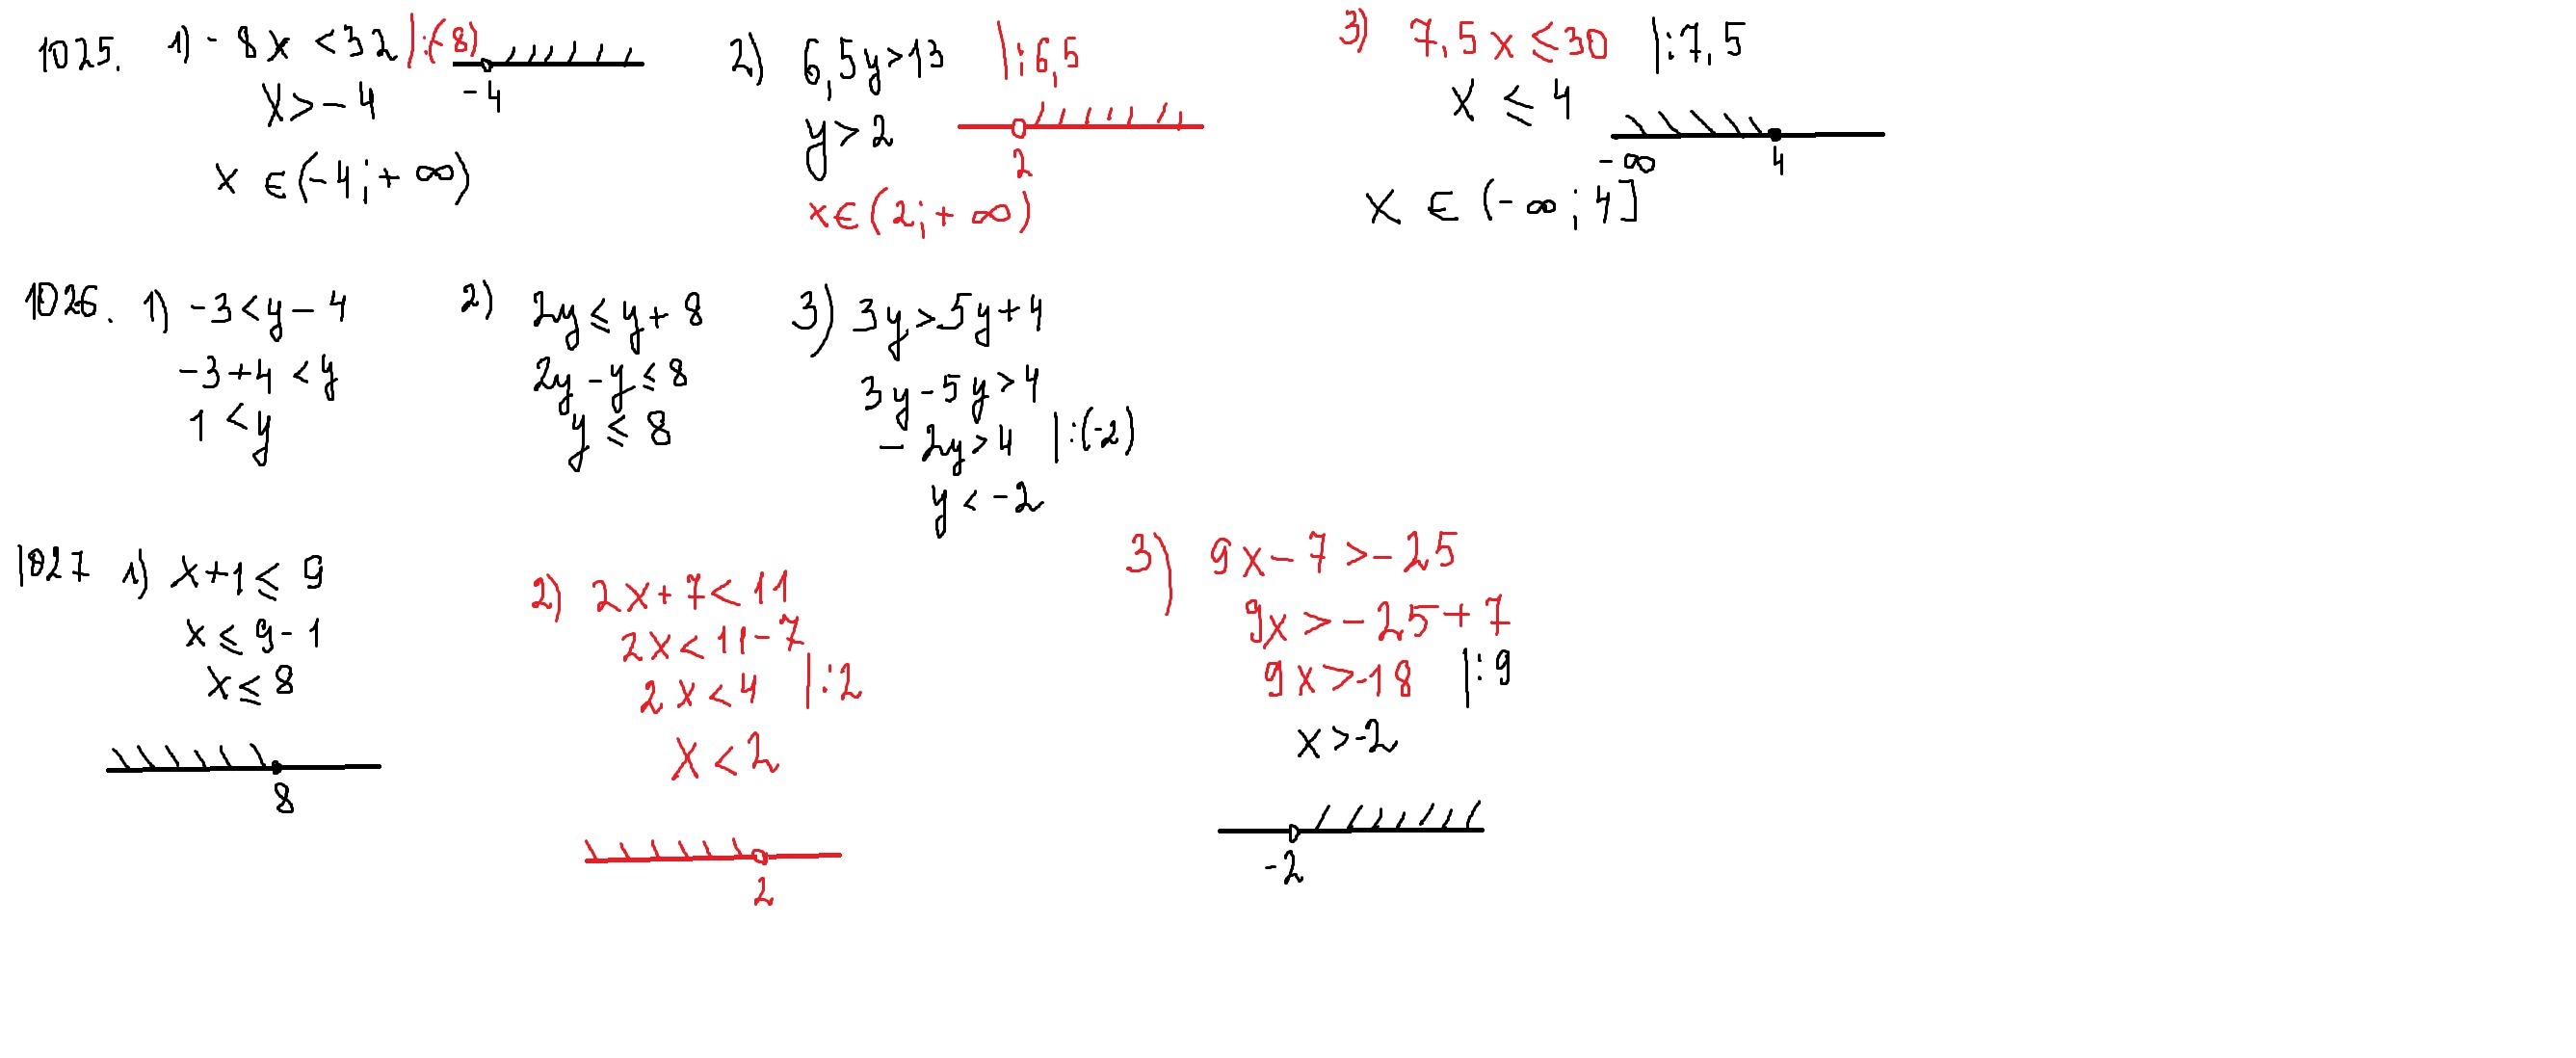 1025. 1) - 8x < 32 |:(-8)
x > - 4
-4
x ∈ (- 4; + ∞)
2) 6,5y > 13 |:6,5
y > 2
2
x ∈ (2; + ∞)
3) 7,5x ≤ 30 |:7,5
x ≤ 4
-∞ 4
x ∈ (-∞; 4]
1026. 1) -3 < y - 4
-3 + 4 < y
1 < y
2) 2y ≤ y + 8
2y - y ≤ 8
y ≤ 8
3) 3y > 5y + 4
3y - 5y > 4
- 2y > 4 |:(-2)
y < -2
1027 1) x + 1 ≤ 9
x ≤ 9 - 1
x ≤ 8
8
2) 2x + 7 < 11
2x < 11 - 7
2x < 4 |:2
x < 2
2
3) 9x - 7 > - 25
9x > - 25 + 7
9x > -18 |:9
x > -2
-2